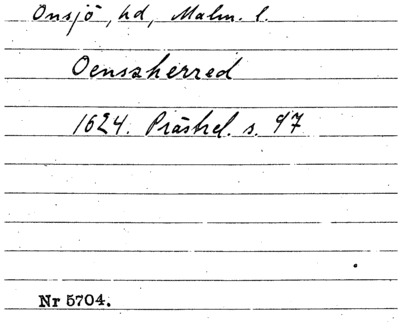 Onsjö, hd, Malm. l.
Oenszherred
1624. Prästrel. s. 97
Nr 5704.